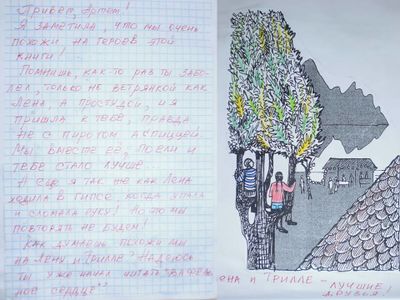 Привет, Артем!
Я заметила, что мы очень
похожи на героев этой
книги!
Помнишь, как-то раз ты забо-
лел, только не ветрянкой как
Лена, а простудой, и я
пришла к тебе, правда
не с пирогом а с пиццей.
Мы вместе её, поели и
тебе стало лучше.
А еще я так же как Лена
ходила в гипсе, когда упала
и сломала руку! Но это мы
повторять не будем!
Как думаешь похожи мы
на Лену и Трилле? Надеюсь
ты уже начал читать "Вафель
сердце"
она и Трилле - лучшие
друзья!